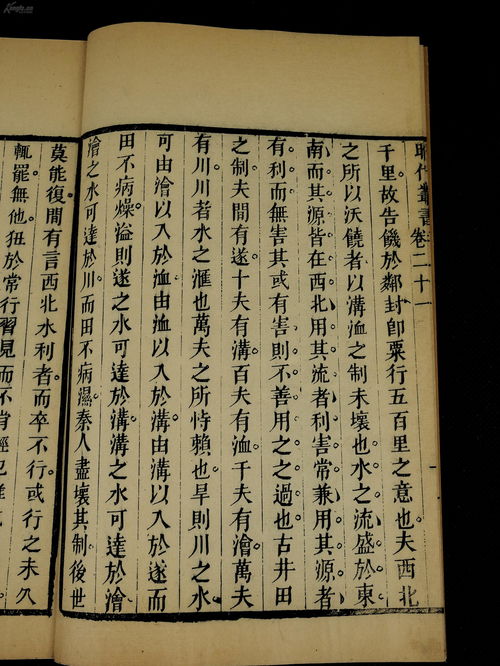 昭代叢書 卷二十一
千里故告饑於鄰封卽粟行五百里之意也夫西北
之所以沃饒者以溝洫之制未壞也水之流盛於東
南而其源皆在西北用其流者利害常兼用其源者
有利而無害其或有害則不善用之之過也古井田
之制夫間有遂十夫有溝百夫有洫千夫有澮萬夫
有川川者水之滙也萬夫之所恃賴也旱則川之水
可由澮以入於洫由洫以入於溝由溝以入於遂而
田不病燥溢則遂之水可達於溝溝之水可達於澮
澮之水可達於川而田不病濕秦人盡壞其制後世
莫能復間有言西北水利者而卒不行或行之未久
輒罷無他狃於常行習見而不肯